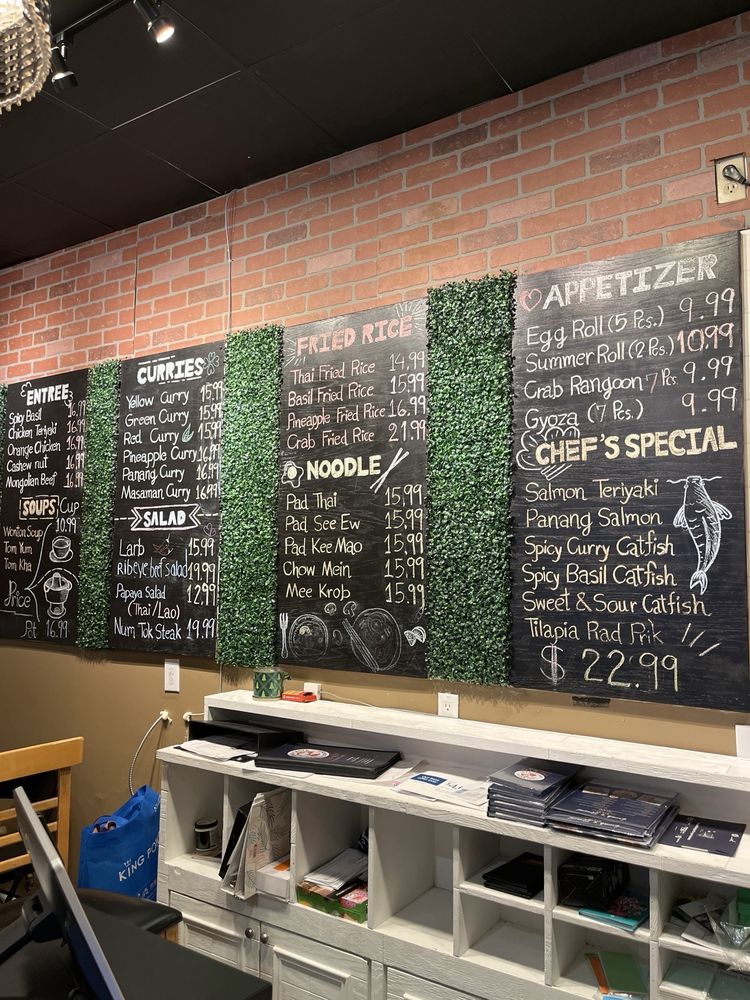 ENTREE
Spicy Basil 16.99
Chicken Teriyaki 16.99
Orange Chicken 16.99
Cashew nut 16.99
Mongolian Beef 16.99
SOUPS Cup
10.99
Wonton Soup
Tom Yum
Tom Kha
Price
Pot 16.99
CURRIES
Yellow Curry 15.99
Green Curry 15.99
Red Curry 15.99
Pineapple Curry 16.99
Panang Curry 16.99
Masaman Curry 16.99
SALAD
Larb 15.99
Ribeye beef Salad 19.99
Papaya Salad 12.99
(Thai/Lao)
Num Tok Steak 19.99
FRIED RICE
Thai Fried Rice 14.99
Basil Fried Rice 15.99
Pineapple Fried Rice 16.99
Crab Fried Rice 21.99
NOODLE
Pad Thai 15.99
Pad See Ew 15.99
Pad Kee Mao 15.99
Chow Mein 15.99
Mee Krob 15.99
APPETIZER
Egg Roll (5 Pcs.) 9.99
Summer Roll (2 Pcs.) 10.99
Crab Rangoon 7 Pcs. 9.99
Gyoza (7 Pcs.) 9.99
CHEF'S SPECIAL
Salmon Teriyaki
Panang Salmon
Spicy Curry Catfish
Spicy Basil Catfish
Sweet & Sour Catfish
Tilapia Rad Prik
$ 22.99
KING PO